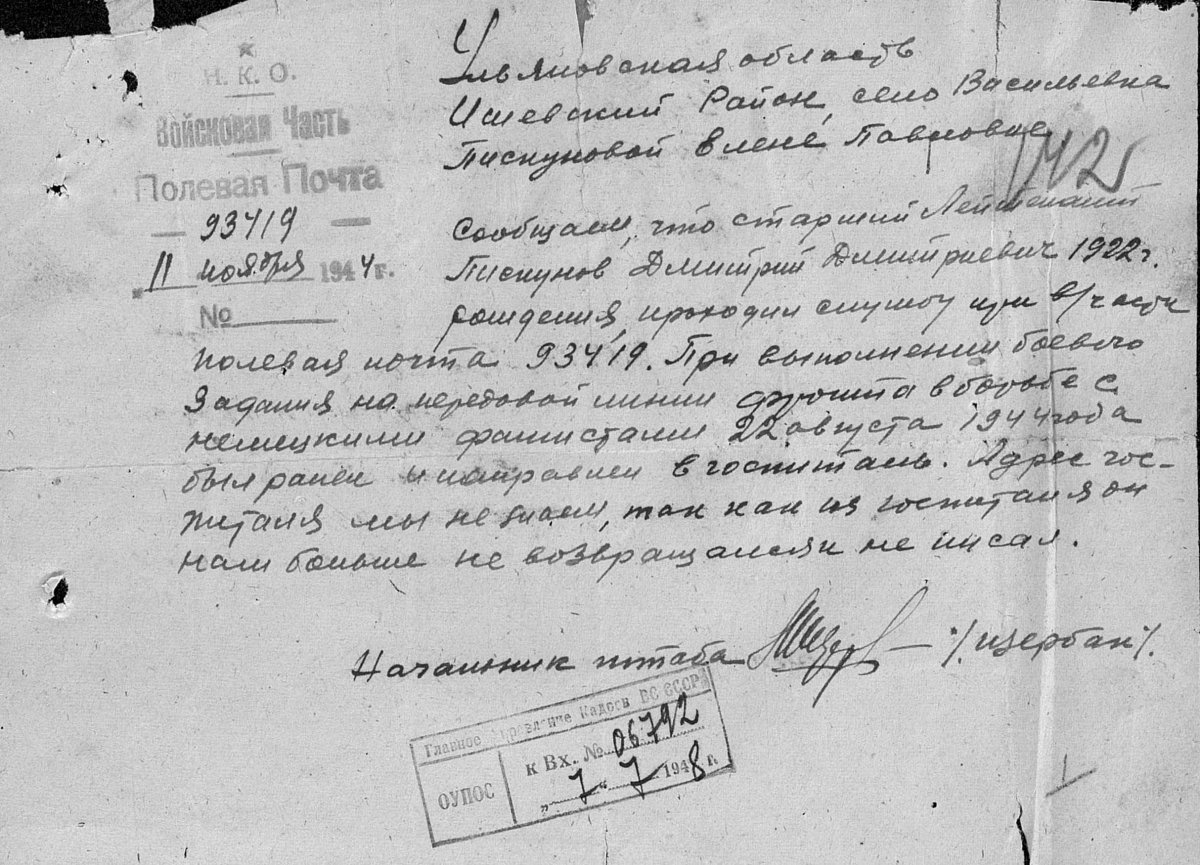 Н. К. О.
Войсковая Часть
Полевая Почта
93419
11 ноября 1944 г.
№
Ульяновская область
Ишевский Район, село Васильевка
Пискуновой Елене Павловне
142
Сообщаем, что старший Лейтенант
Пискунов Дмитрий Дмитриевич 1922 г.
рождения, проходил службу при в/части
полевая почта 93419. При выполнении боевого
задания на передовой линии фронта в борьбе с
немецкими фашистами 22 августа 1944 года
был ранен и направлен в госпиталь. Адрес гос-
питаля мы не знаем, так как из госпиталя он
нам больше не возвращался и не писал.
Начальник штаба /Щербак/.
Главное Управление Кадров ВС СССР
ОУПОС
к Вх. № 06792
„7“ 7 1948 г.